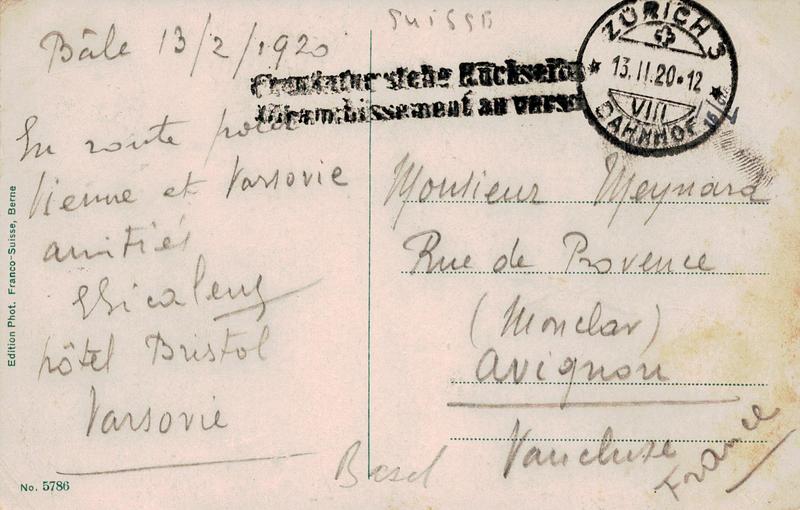 SUISSE
Bâle 13/2/1920
Frankatur siehe Rückseite
Affranchissement au verso
ZÜRICH 3
13.II.20·12
VIII
BAHNHOF
En route pour
Vienne et Varsovie
amitiés
hôtel Bristol
Varsovie
Monsieur Meynard
Rue de Provence
(Monclar)
Avignon
Vaucluse
France
Basel
Edition Phot. Franco-Suisse, Berne
No. 5786